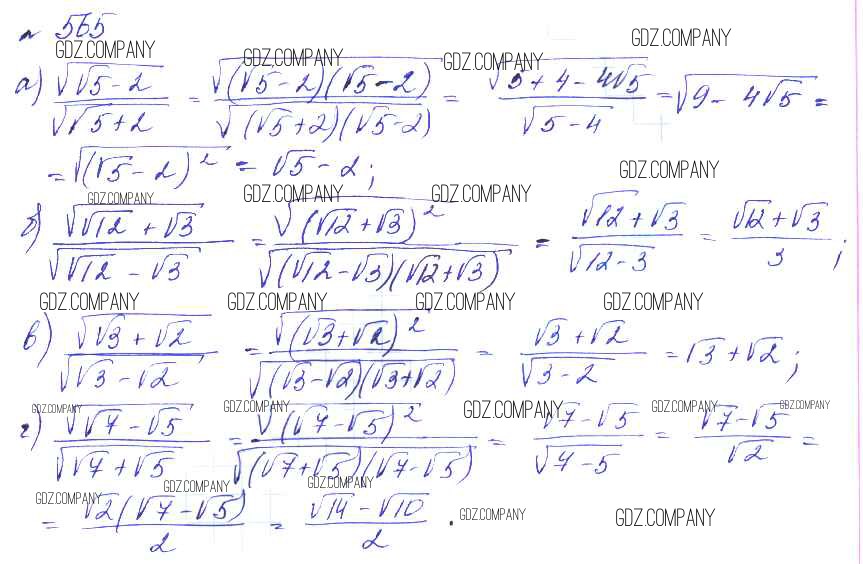 № 565
GDZ.COMPANY GDZ.COMPANY GDZ.COMPANY GDZ.COMPANY
а) √(√5 - 2) / √(√5 + 2) = √((√5 - 2)(√5 - 2)) / √((√5 + 2)(√5 - 2)) = √(5 + 4 - 4√5) / √(5 - 4) = √(9 - 4√5) =
= √((√5 - 2)²) = √5 - 2;
GDZ.COMPANY
GDZ.COMPANY GDZ.COMPANY GDZ.COMPANY
б) √(√12 + √3) / √(√12 - √3) = √((√12 + √3)²) / √((√12 - √3)(√12 + √3)) = √12 + √3 / √(12 - 3) = √12 + √3 / 3;
GDZ.COMPANY GDZ.COMPANY GDZ.COMPANY GDZ.COMPANY
в) √(√3 + √2) / √(√3 - √2) = √((√3 + √2)²) / √((√3 - √2)(√3 + √2)) = √3 + √2 / √(3 - 2) = √3 + √2;
GDZ.COMPANY GDZ.COMPANY GDZ.COMPANY GDZ.COMPANY GDZ.COMPANY
г) √(√7 - √5) / √(√7 + √5) = √((√7 - √5)²) / √((√7 + √5)(√7 - √5)) = √7 - √5 / √(7 - 5) = √7 - √5 / √2 =
GDZ.COMPANY GDZ.COMPANY GDZ.COMPANY
= √2(√7 - √5) / 2 = √14 - √10 / 2.
GDZ.COMPANY GDZ.COMPANY